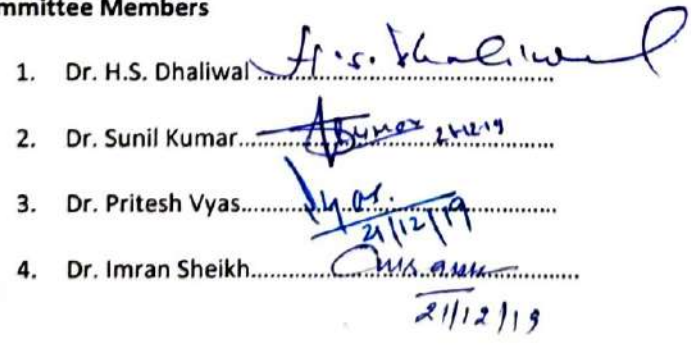 mmittee Members
1. Dr. H.S. Dhaliwal H.S. Dhaliwal
2. Dr. Sunil Kumar.......... 21.12.19
3. Dr. Pritesh Vyas.......... Vyas.
21/12/19
4. Dr. Imran Sheikh..........
21/12/19